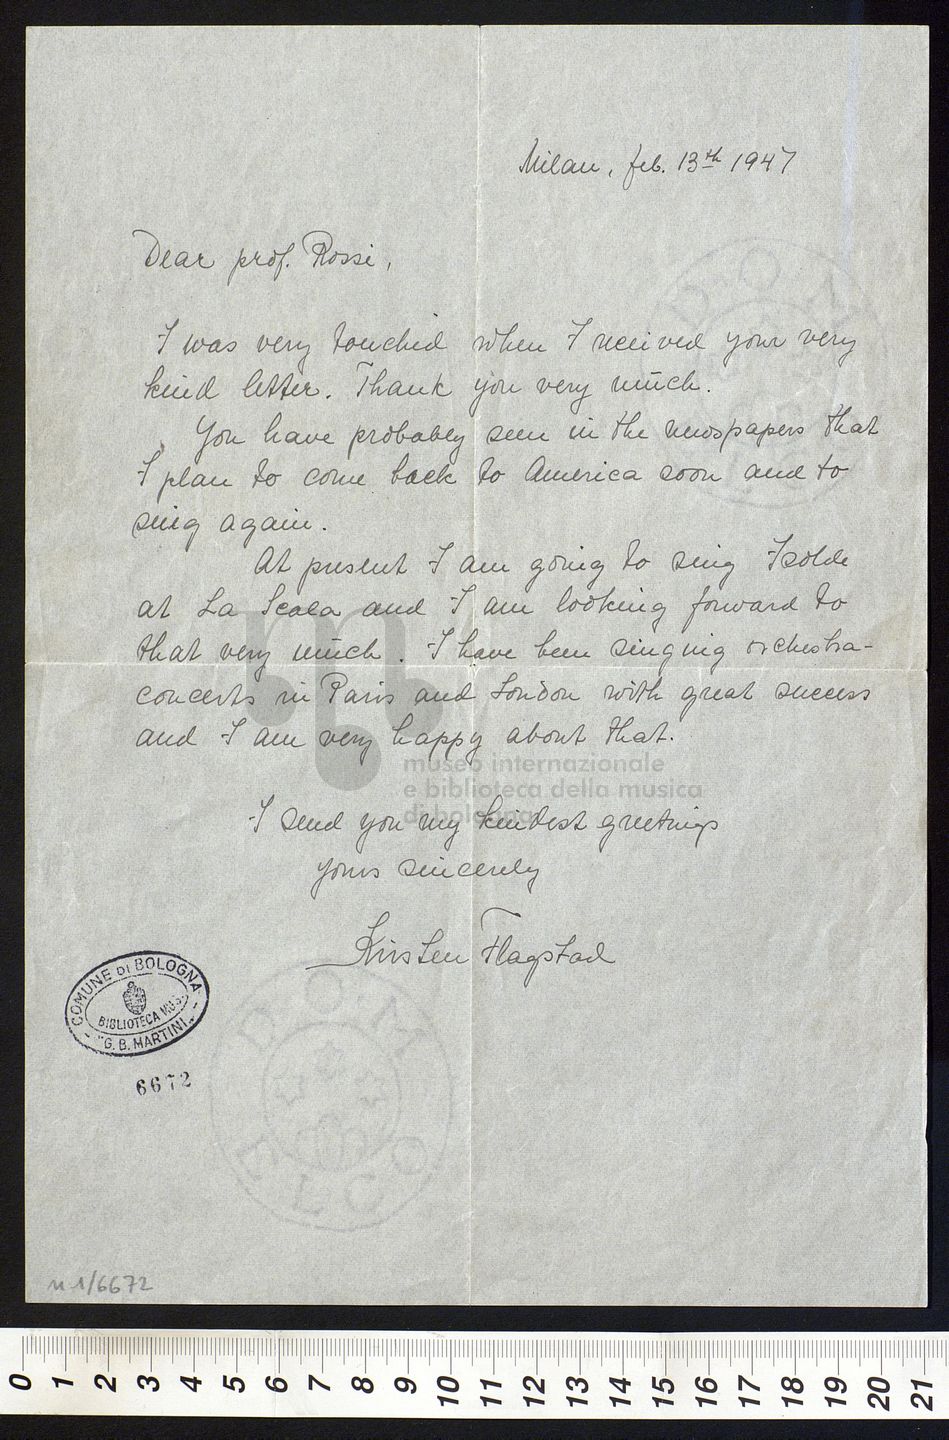 Milan, feb. 13th 1947
Dear prof. Rossi,
I was very touched when I received your very
kind letter. Thank you very much.
You have probably seen in the newspapers that
I plan to come back to America soon and to
sing again.
At present I am going to sing Isolde
at La Scala and I am looking forward to
that very much. I have been singing orchestra-
concerts in Paris and London with great success
and I am very happy about that.
museo internazionale
e biblioteca della musica
di bologna
I send you my kindest greetings
yours sincerely
Kirsten Flagstad
COMUNE DI BOLOGNA
BIBLIOTECA MUS.
"G. B. MARTINI"
6672
n 1/6672
0 1 2 3 4 5 6 7 8 9 10 11 12 13 14 15 16 17 18 19 20 21